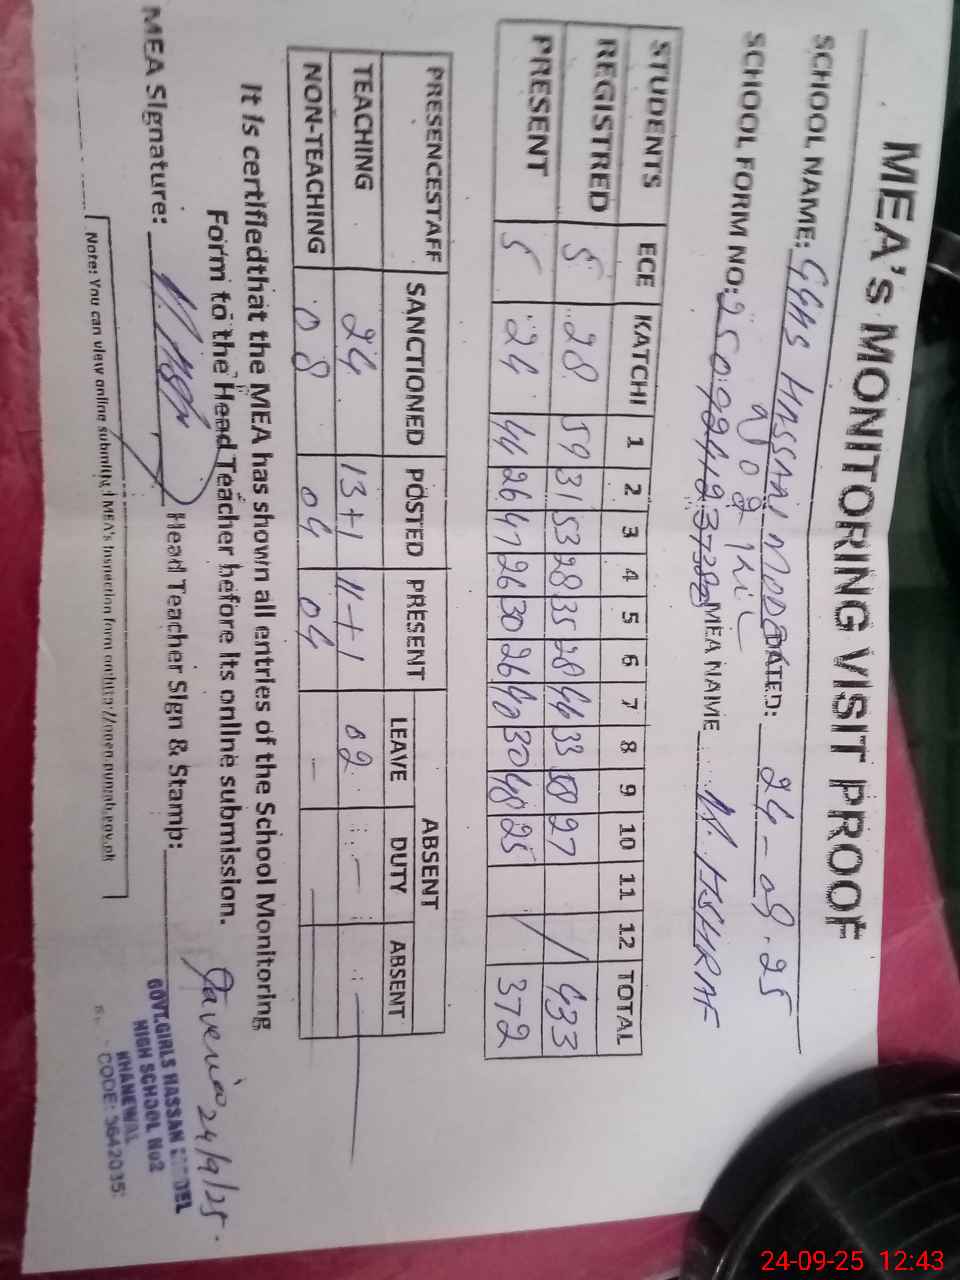 MEA'S MONITORING VISIT PROOF
SCHOOL NAME: GGHS HASSAN MODEL DATED: 24-09-25
No 2 KWL
SCHOOL FORM NO: MEA NAME M. ASHRAF
STUDENTS ECE KATCHI 1 2 3 4 5 6 7 8 9 10 11 12 TOTAL
REGISTRED 5 28 59 31 53 28 35 28 44 33 58 27 / 433
PRESENT 5 24 44 26 47 26 30 26 40 30 48 25 / 372
PRESENCESTAFF SANCTIONED POSTED PRESENT ABSENT
LEAVE DUTY ABSENT
TEACHING 24 13+1 11+1 02 - -
NON-TEACHING 08 04 04 - - -
It is certifiedthat the MEA has shown all entries of the School Monitoring
Form to the Head Teacher before its online submission.
MEA Signature: Head Teacher Sign & Stamp:
24/9/25
GOVT.GIRLS HASSAN MODEL
HIGH SCHOOL No2
KHANEWAL
CODE: 3642035
Note: You can view online submitted MEA's Inspection form on http://open.punjab.gov.pk
24-09-25 12:43